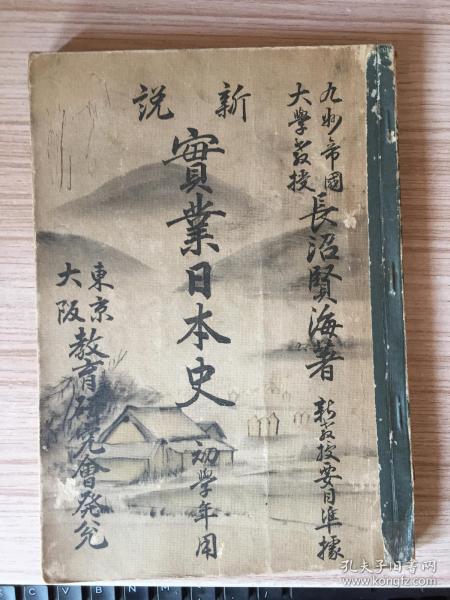 九州帝國
大學教授
長沼賢海著
新教授要目準據
新說
實業日本史
初學年用
東京
大阪
教育研究會發兌
孔夫子旧书网
kongfz.com